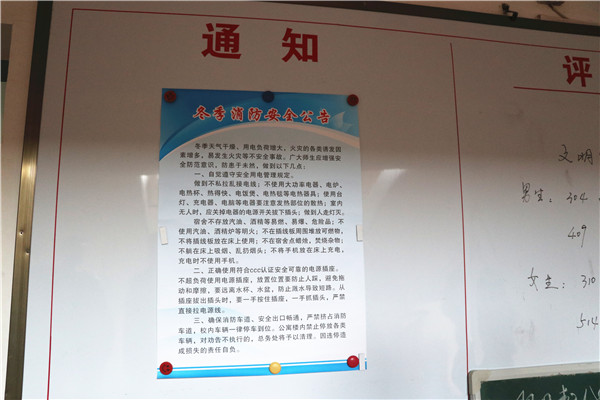 通知
评
冬季消防安全公告
冬季天气干燥、用电负荷增大，火灾的各类诱发因
素增多，易发生火灾等不安全事故。广大师生应增强安
全防范意识，防患于未然，做到以下几点：
一、自觉遵守安全用电管理规定。
做到不私拉乱接电线；不使用大功率电器、电炉、
电热杯、热得快、电饭煲、电热毯等电热器具；使用台
灯、充电器、电脑等电器要注意发热部位的散热；室内
无人时，应关掉电器的电源开关拔下插头；做到人走灯灭。
宿舍不存放汽油、酒精等易燃、易爆、危险品；不
使用汽油、酒精炉等明火；不在插线板周围堆放可燃物，
不将插线板放在床上使用；不在宿舍点蜡烛，焚烧杂物；
不躺在床上吸烟、乱扔烟头；不将手机放在床上充电，
充电时不使用手机。
二、正确使用符合ccc认证安全可靠的电源插座。
不超负荷使用电源插座，放置位置要防止人踩，避免拖
动和摩擦，要远离水杯、水盆，防止溅水导致短路。从
插座拔出插头时，要一手按住插座，一手抓插头，严禁
直接拉电源线。
三、确保消防车道、安全出口畅通，严禁挤占消防
车道，校内车辆一律停车到位。公寓楼内禁止停放各类
车辆，对劝告不执行的，总务处将予以清理。因违停造
成损失的责任自负。
文明
男生：304
409
女生：310
514